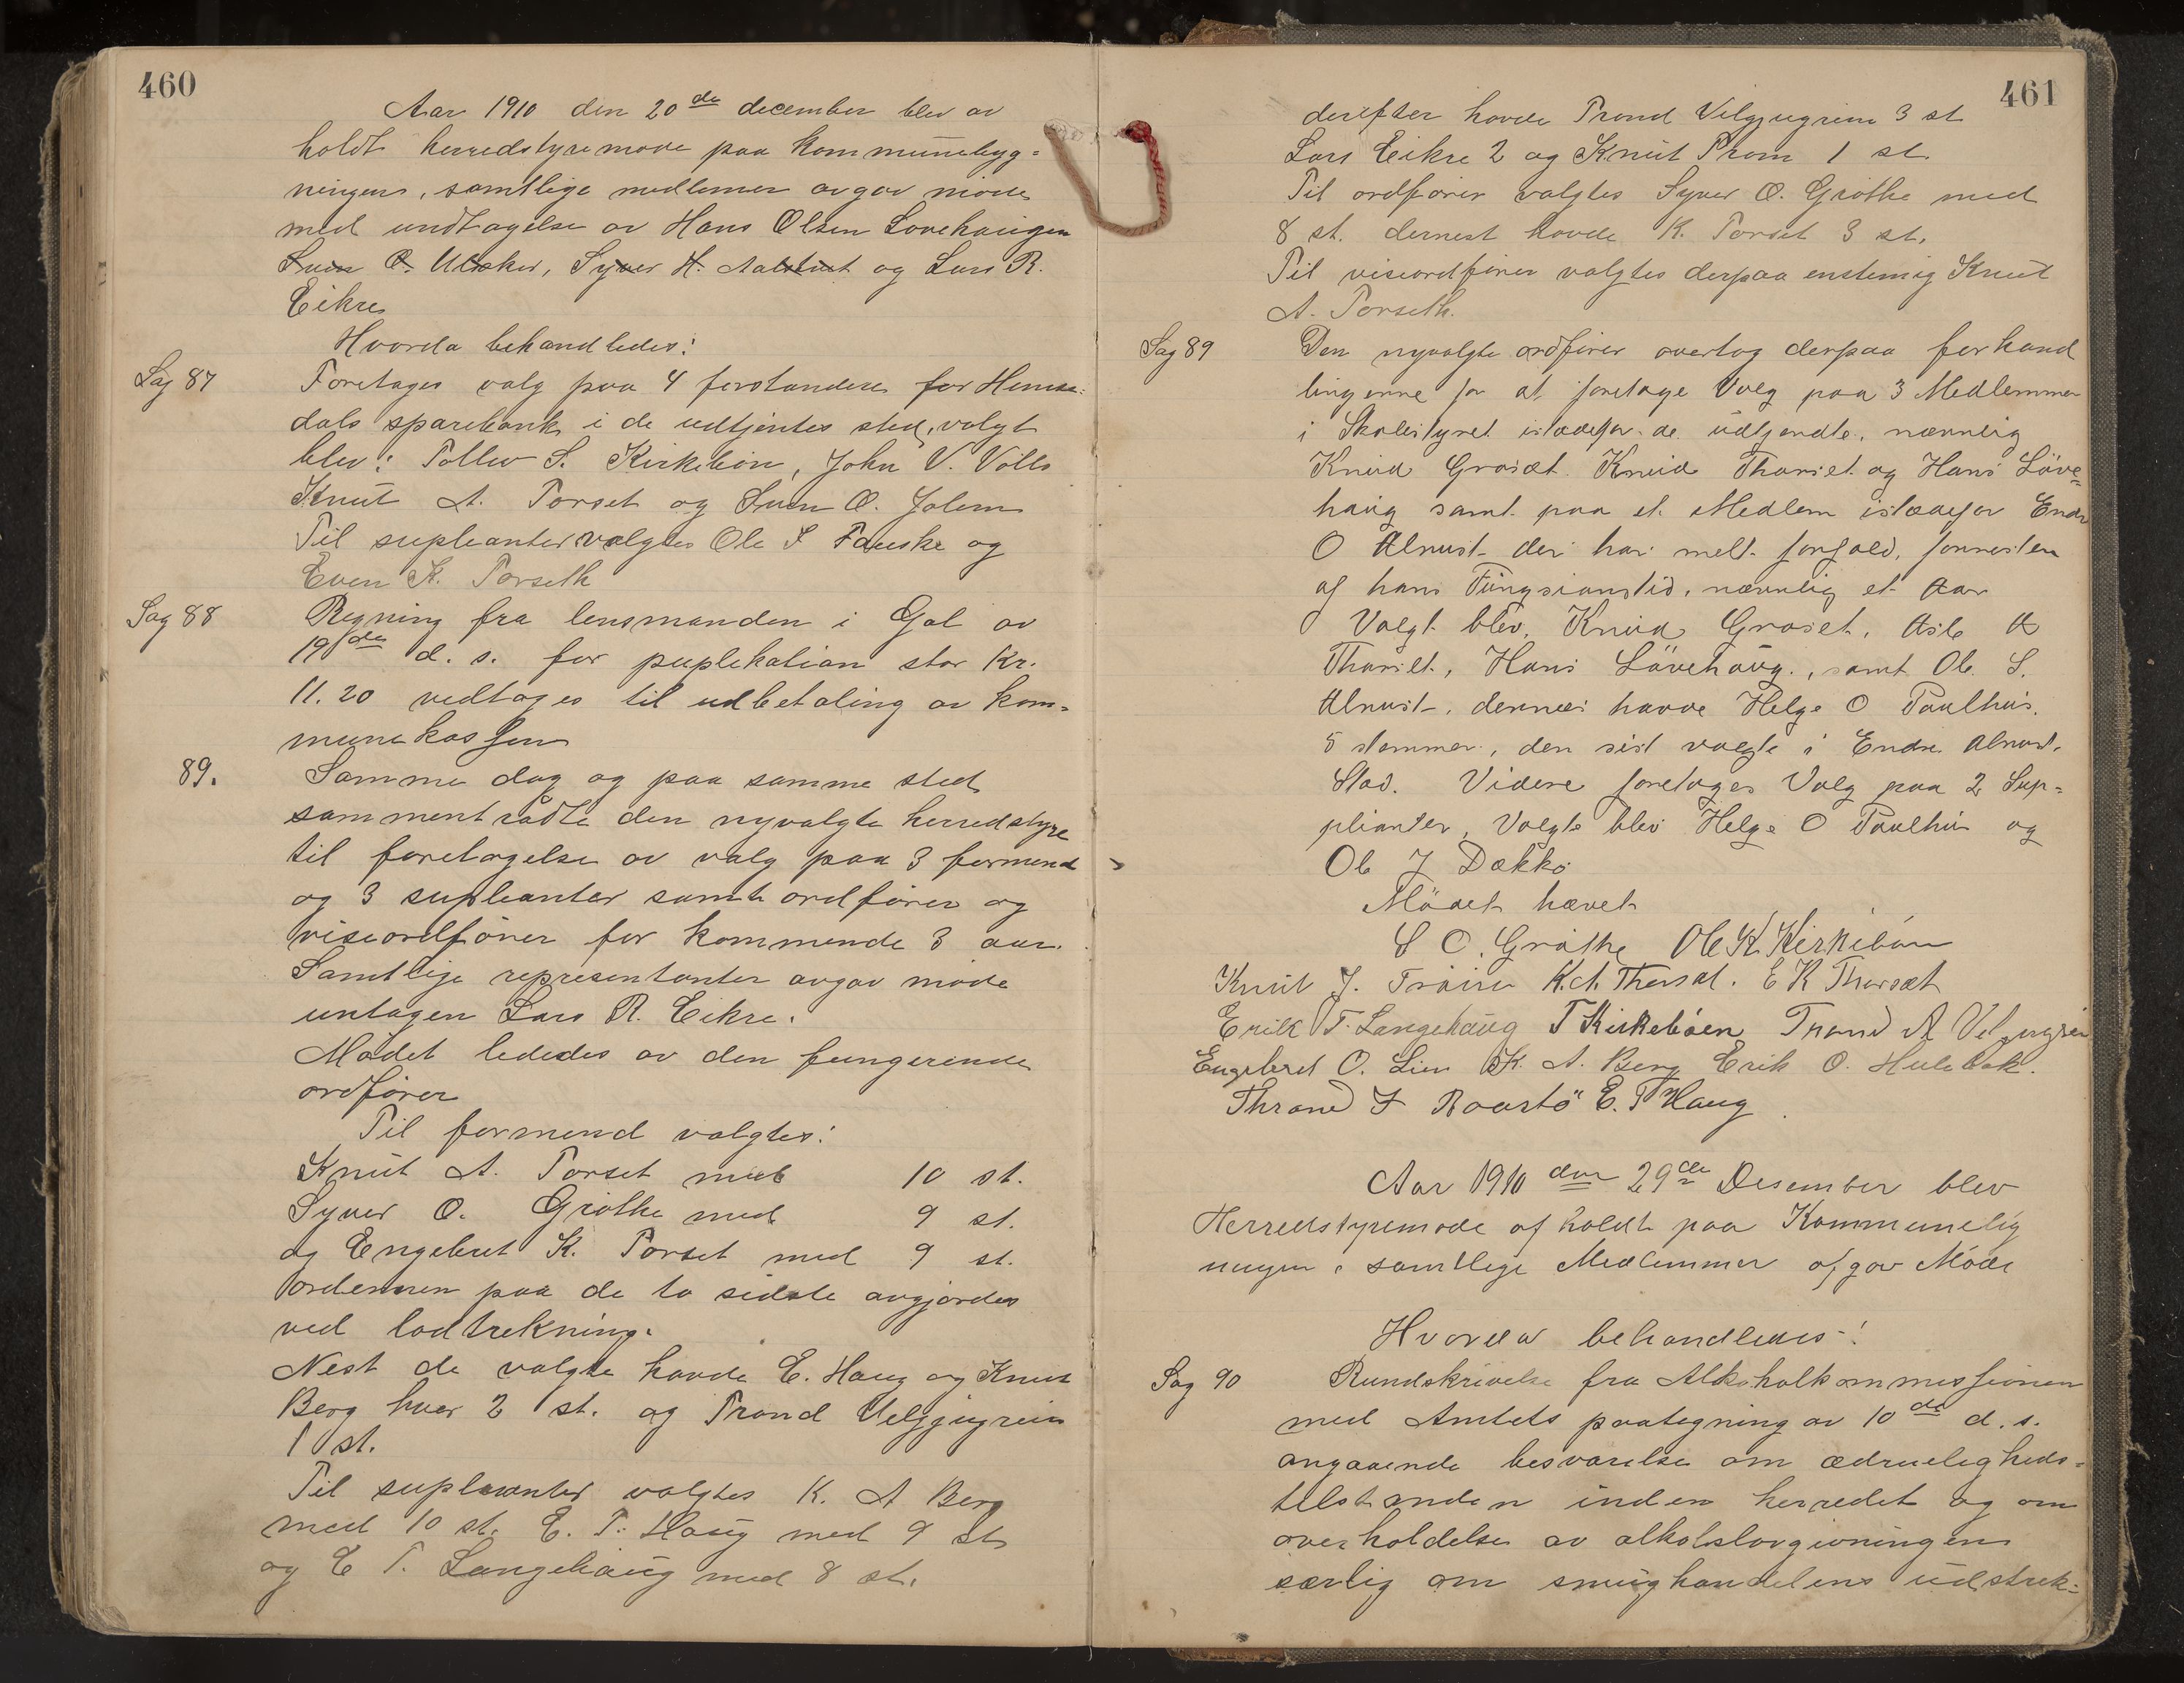 460
Aar 1910 den 20de december blev av
holdt herredstyremøve paa kommunebyg=
ningens, samtlige medlemer avgav møde
med undtagelse av Hans Olsen Løvehaugen
Sven O. Ulsker, Syver H. og Lars R.
Eikre
Hvorda behandledes:
Sag 87
Foretages valg paa 4 forstandere for Hemse=
dals sparebank i de udtjentes sted, valgt
blev: Tollev S. Kirkebøn, John V. Volls
Knut A. Torset og Sven O. Jolem
Til supleanter valgtes Ole S Fauske og
Even K. Torseth
Sag 88
Regning fra lensmanden i Gol av
19de d. s. for puplikation stor Kr.
11.20 vedtages til udbetaling av kom=
munekassen
89.
Samme dag og paa samme sted
sammentrådte den nyvalgte herredstyre
til foretagelse av valg paa 3 formend
og 3 supleanter samt ordfører og
viseordfører for kommende 3 aar.
Samtlige representanter avgav møde
untagen Lars R. Eikre.
Mødet lededes av den fungerende
ordfører
Til formend valgtes:
Knut A. Torset med 10 st.
Syver O. Grøthe med 9 st.
og Engebret K. Torset med 9 st.
ordennen paa de to sidste avgjordes
ved lodtrekning.
Nest de valgte havde E. Haug og Knut
Berg hver 2 st. og Trond Velgjugrein
1 st.
Til supleanter valgtes K. A Berg
med 10 st. E. T. Haug med 9 st
og E T. Langehaug med 8 st.
461
derefter havde Trond Vilgjugrein 3 st
Lars Eikre 2 og Knut Trøm 1 st.
Til ordfører valgtes Syver O. Grøthe med
8 st. dernest havde K. Torset 3 st.
Til viseordfører valgtes derpaa enstemig Knut
A. Torseth.
Sag 89
Den nyvalgte ordfører overtog derpaa forhand
lingerne for at foretage Valg paa 3 Medlemmer
i Skolestyret istædefor de udtjendte, nævnlig
Knud Grøset Knud Thorset og Hans Löve=
haug samt paa et Medlem istædefor Endr
O Ålrust der har melt forfald, for resten
af hans Fungsionstid, nævnlig et Aar
Valgt blev, Knud Grøset, Asle A
Thorset, Hans Lövehaug, samt Ole S.
Alrust, dernæs havde Helge O Tuulhus.
5 stemmer, den sist valgte i Endre Alrust.
Stad. Videre foretoges Valg paa 2 Sup=
plianter, Valgte blev Helge O Tuulhus og
Ole J Dokkø
Mödet hævet
S O. Grøthe Ole K. Kirkebøen
Knut J. Trøim K. A. Thorset. E K Thorset
Erik T. Langehaug T Kirkebøen Trond A Velgugrein
Engebret O. Lien K. A. Berg Erik O. Hulebak.
Thrond J Roastö E. T Haug
Aar 1910 den 29de Desember blev
Herredstyremøde afholdt paa Kommunebyg
ningen, samtlige Medlemmer afgav Møde
Hvorda behandledes:
Sag 90
Rundskrivelse fra Alkoholkommissionen
med Amtets paategning av 10de d. s.
angaaende besvarelse om ædrueligheds=
tilstanden inden herredet og om
overholdelse av alkohollovgivningen
særlig om smughandelens udstrek=